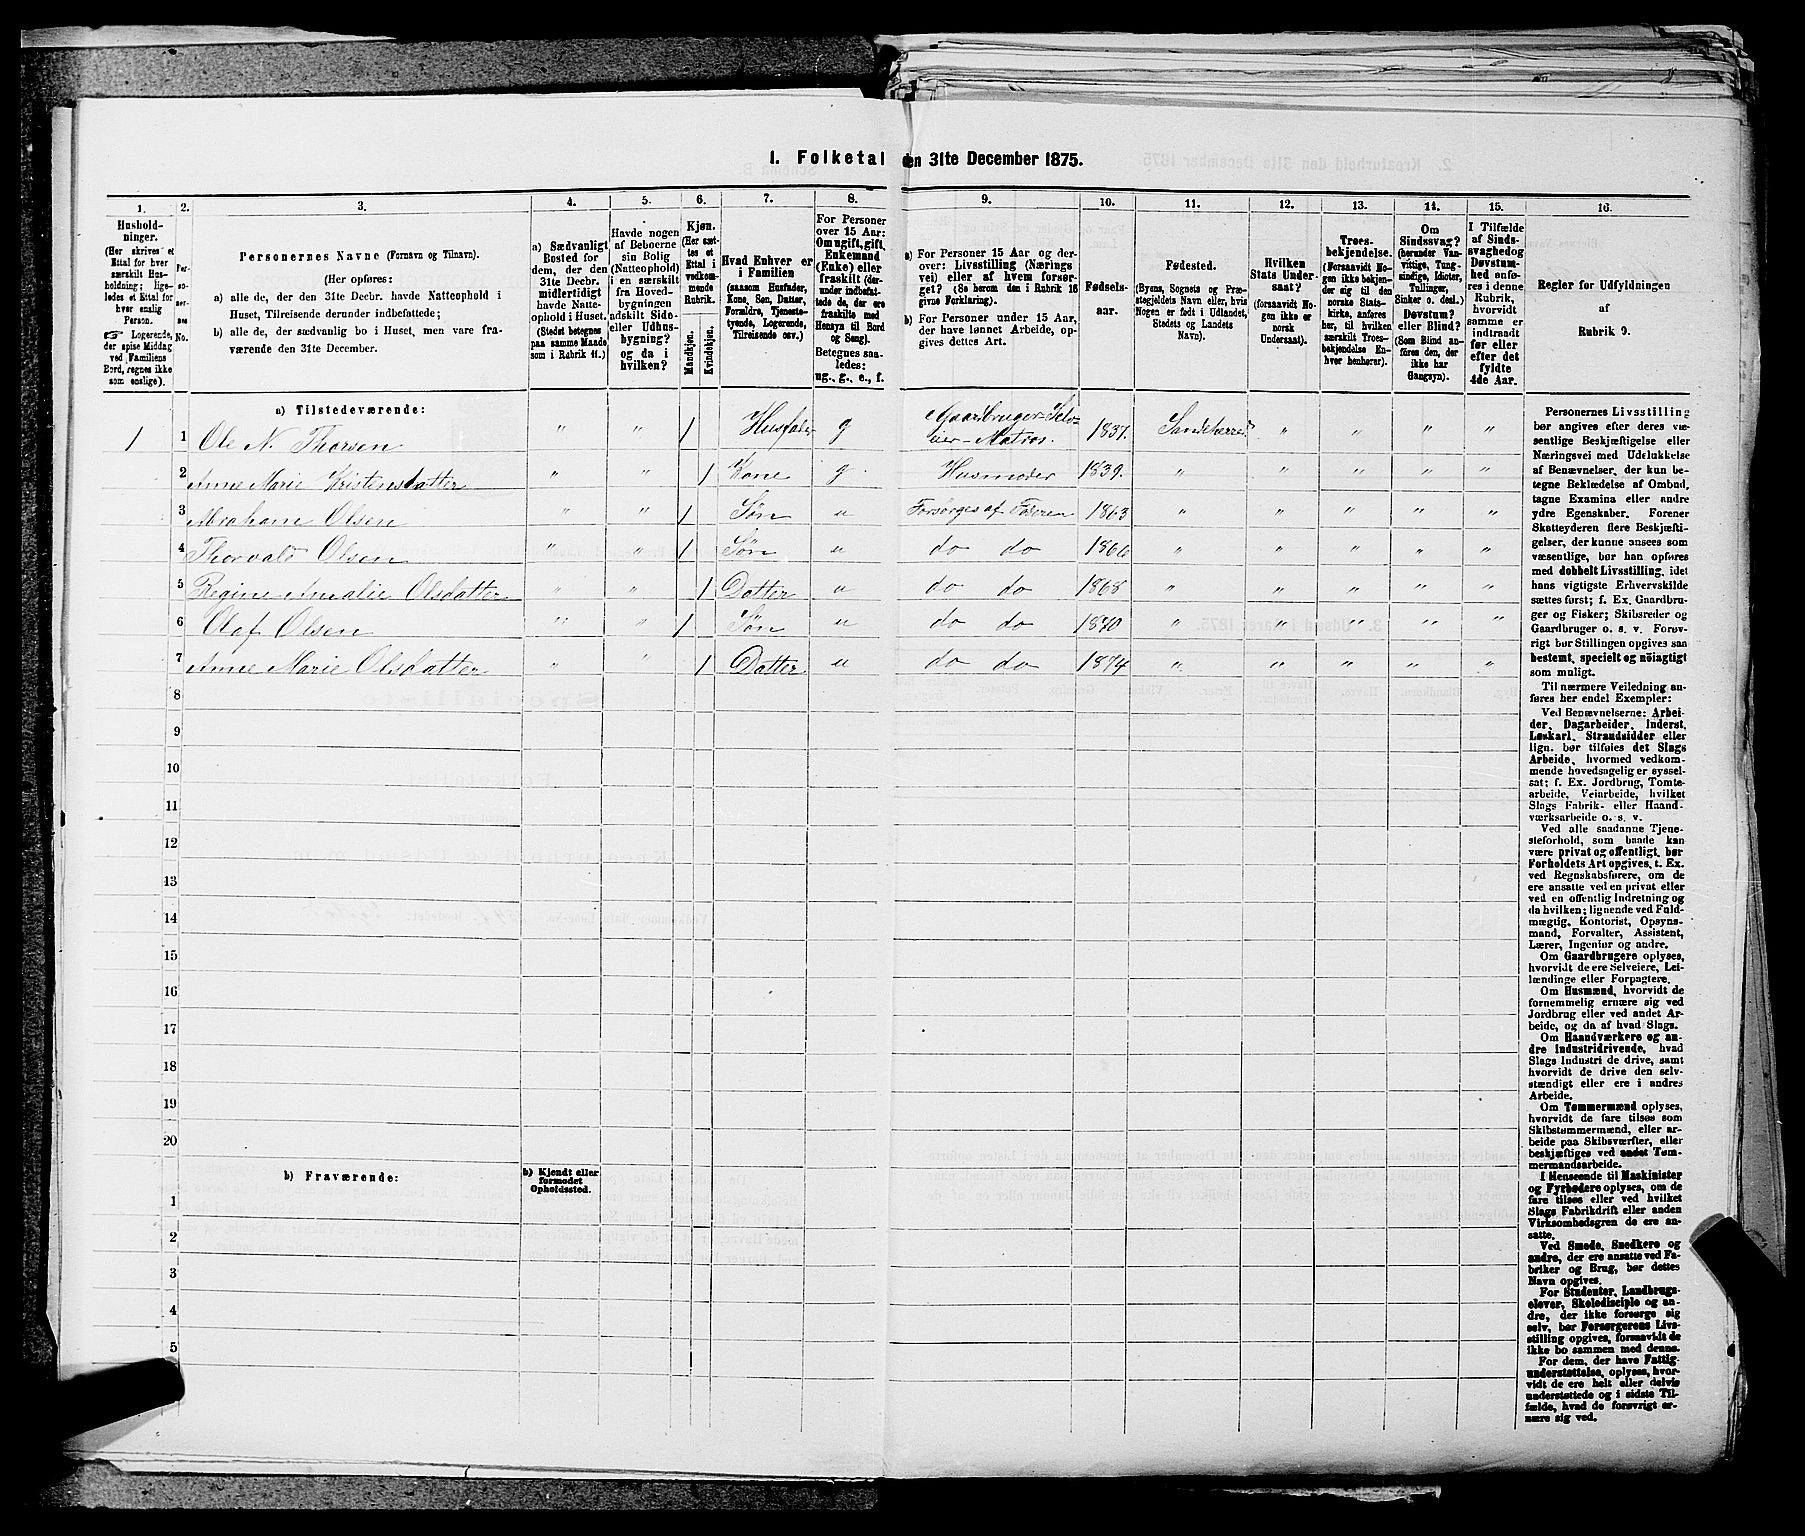 1. Folketal den 31te December 1875.
1.
Hushold-
ninger.
(Her skrives et
Ettal for hver
særskilt Hus-
holdning; lige-
ledes et Ettal for
hver enslig
Person.
☞ Logerende,
der spise Middag
ved Familiens
Bord, regnes ikke
som enslige).
2.
Per-
so-
ner-
nes
No.
3.
Personernes Navne (Fornavn og Tilnavn).
(Her opføres:
a) alle de, der den 31te Decbr. havde Natteophold i
Huset, Tilreisende derunder indbefattede;
b) alle de, der sædvanlig bo i Huset, men vare fra-
værende den 31te December.
4.
a) Sædvanligt
Bosted for
dem, der den
31te Decbr.
midlertidigt
havde Natte-
ophold i Huset.
(Stedet betegnes
paa samme Maade
som i Rubrik 11.)
5.
Havde nogen
af Beboerne
sin Bolig
(Natteophold)
i en særskilt
fra Hoved-
bygningen
adskilt Side-
eller Udhus-
bygning?
og da i
hvilken?
6.
Kjøn.
(Her sæt-
tes et
Ettal i
vedkom-
mende
Rubrik.
Mandkjøn.
Kvindekjøn.
7.
Hvad Enhver er
i Familien
(saasom Husfader,
Kone, Søn, Datter,
Forældre, Tjeneste-
tyende, Logerende,
Tilreisende osv.)
8.
For Personer
over 15 Aar:
Om ugift, gift,
Enkemand
(Enke) eller
fraskilt (der-
under indbefat-
tede de, der ere
fraskilte med
Hensyn til Bord
og Seng).
Betegnes saa-
ledes:
ug., g., e., f.
9.
a) For Personer 15 Aar og der-
over: Livsstilling (Nærings
vei) eller af hvem forsør-
get? (Se herom den i Rubrik 16
givne Forklaring).
b) For Personer under 15 Aar,
der have lønnet Arbeide, op-
gives dettes Art.
10.
Fødsels-
aar.
11.
Fødested.
(Byens, Sognets og Præ-
stegjeldets Navn eller, hvis
Nogen er født i Udlandet,
Stedets og Landets
Navn).
12.
Hvilken
Stats Under-
saat?
(forsaavidt No-
gen ikke er
norsk
Undersaat).
13.
Troes-
bekjendelse.
(Forsaavidt No-
gen ikke bekjen-
der sig til den
norske Stats-
kirke, anføres
her, til hvilken
særskilt Troes-
bekjendelse En-
hver henhører).
14.
Om
Sindssvag?
(herunder Van-
vittige, Tung-
sindige, Idioter,
Tullinger,
Sinker o. desl.)
Døvstum?
eller Blind?
(Som Blind an-
føres den, der
ikke har
Gangsyn).
15.
I Tilfælde
af Sinds-
svaghed og
Døvstum-
hed anfø-
res i denne
Rubrik,
hvorvidt
samme er
indtraadt
før eller
efter det
fyldte
4de Aar.
16.
Regler for Udfyldningen
af
Rubrik 9.
a) Tilstedeværende:
1 1 Ole N. Thorsen " " 1 Husfader g Gaardbruger-Selv-
eier-Matros. 1837. Sandeherred. " " " "
2 Anne Marie Kristensdatter " " 1 Kone g Husmoder 1839. " " " " "
3 Abraham Olsen " " 1 Søn u Forsørges af Faderen 1863 " " " " "
4 Thorvald Olsen " " 1 Søn u do do 1866 " " " " "
5 Regine Amalie Olsdatter " " 1 Datter u do do 1868 " " " " "
6 Olaf Olsen " " 1 Søn u do do 1870 " " " " "
7 Anne Marie Olsdatter " " 1 Datter u do do 1874 " " " " "
8
9
10
11
12
13
14
15
16
17
18
19
20
b) Fraværende:
b) Kjendt eller
formodet
Opholdssted.
1
2
3
4
5
Personernes Livsstilling
bør angives efter deres væ-
sentlige Beskjæftigelse eller
Næringsvei med Udelukkelse
af Benævnelser, der kun be-
tegne Beklædelse af Ombud,
tagne Examina eller andre
ydre Egenskaber. Forener
Skatteyderen flere Beskjæfti-
gelser, der kunne ansees som
væsentlige, bør han opføres
med dobbelt Livsstilling, idet
hans vigtigste Erhvervskilde
sættes først; f. Ex. Gaardbru-
ger og Fisker; Skibsreder og
Gaardbruger o. s. v. Forøv-
rigt bør Stillingen opgives saa
bestemt, specielt og nøiagtigt
som muligt.
Til nærmere Veiledning an-
føres her endel Exempler:
Ved Benævnelserne: Arbei-
der, Dagarbeider, Inderst,
Løskarl, Strandsidder eller
lign. bør tilføies det Slags
Arbeide, hvormed vedkom-
mende hovedsagelig er syssel-
sat; f. Ex. Jordbrug, Tomte-
arbeide, Veiarbeide, hvilket
Slags Fabrik- eller Haand-
værksarbeide o. s. v.
Ved alle saadanne Tjene-
steforhold, som baade kan
være privat og offentligt, bør
Forholdets Art opgives, t. Ex.
ved Regnskabsførere, om de
ere ansatte ved en privat eller
ved en offentlig Indretning og
da hvilken; lignende ved Fuld-
mægtig, Kontorist, Opsyns-
mand, Forvalter, Assistent,
Lærer, Ingeniør og andre.
Om Gaardbrugere oplyses,
hvorvidt de ere Selveiere, Lei-
lændinge eller Forpagtere.
Om Husmænd, hvorvidt de
fornemmelig ernære sig ved
Jordbrug eller ved andet Ar-
beide, og da af hvad Slags.
Om Haandværkere og an-
dre Industridrivende, hvad
Slags Industri de drive, samt
hvorvidt de drive den selv-
stændigt eller ere i andres
Arbeide.
Om Tømmermænd oplyses,
hvorvidt de fare tilsøs som
Skibstømmermænd, eller ar-
beide paa Skibsværfter, eller
beskjæftiges ved andet Tøm-
mermandsarbeide.
I Henseende til Maskinister
og Fyrbødere oplyses, om de
fare tilsøs eller ved hvilket
Slags Fabrikdrift eller anden
Virksomhedsgren de ere an-
satte.
Ved Smede, Snedkere og
andre, der ere ansatte ved Fa-
briker og Brug, bør dettes
Navn opgives.
For Studenter, Landbrugs-
elever, Skoledisciple og an-
dre, der ikke forsørge sig
selv, bør Forsørgerens Livs-
stilling opgives, forsaavidt de
ikke bo sammen med denne.
For dem, der have Fattig-
understøttelse, oplyses, hvor-
vidt de ere helt eller delvis
understøttede og i sidste Til-
fælde, hvad de forøvrigt er-
nære sig ved.